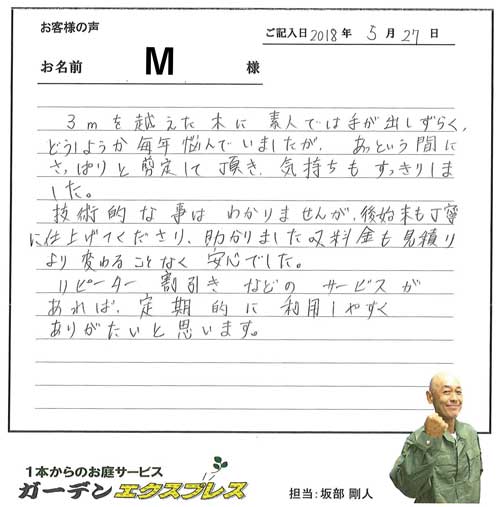 お客様の声
ご記入日2018年 5月27日
お名前 M 様
3mを越えた木に 素人では手が出しずらく、
どうしようか毎年悩んでいましたが、あっという間に
さっぱりと剪定して頂き、気持ちもすっきりしま
した。
技術的な事は わかりませんが、後始末も丁寧
に仕上げてくださり、助かりました。料金も見積り
より変わることなく 安心でした。
リピーター 割引き などの サービスが
あれば、定期的に 利用しやすく
ありがたいと思います。
1本からのお庭サービス
ガーデンエクスプレス
担当:坂部 剛人